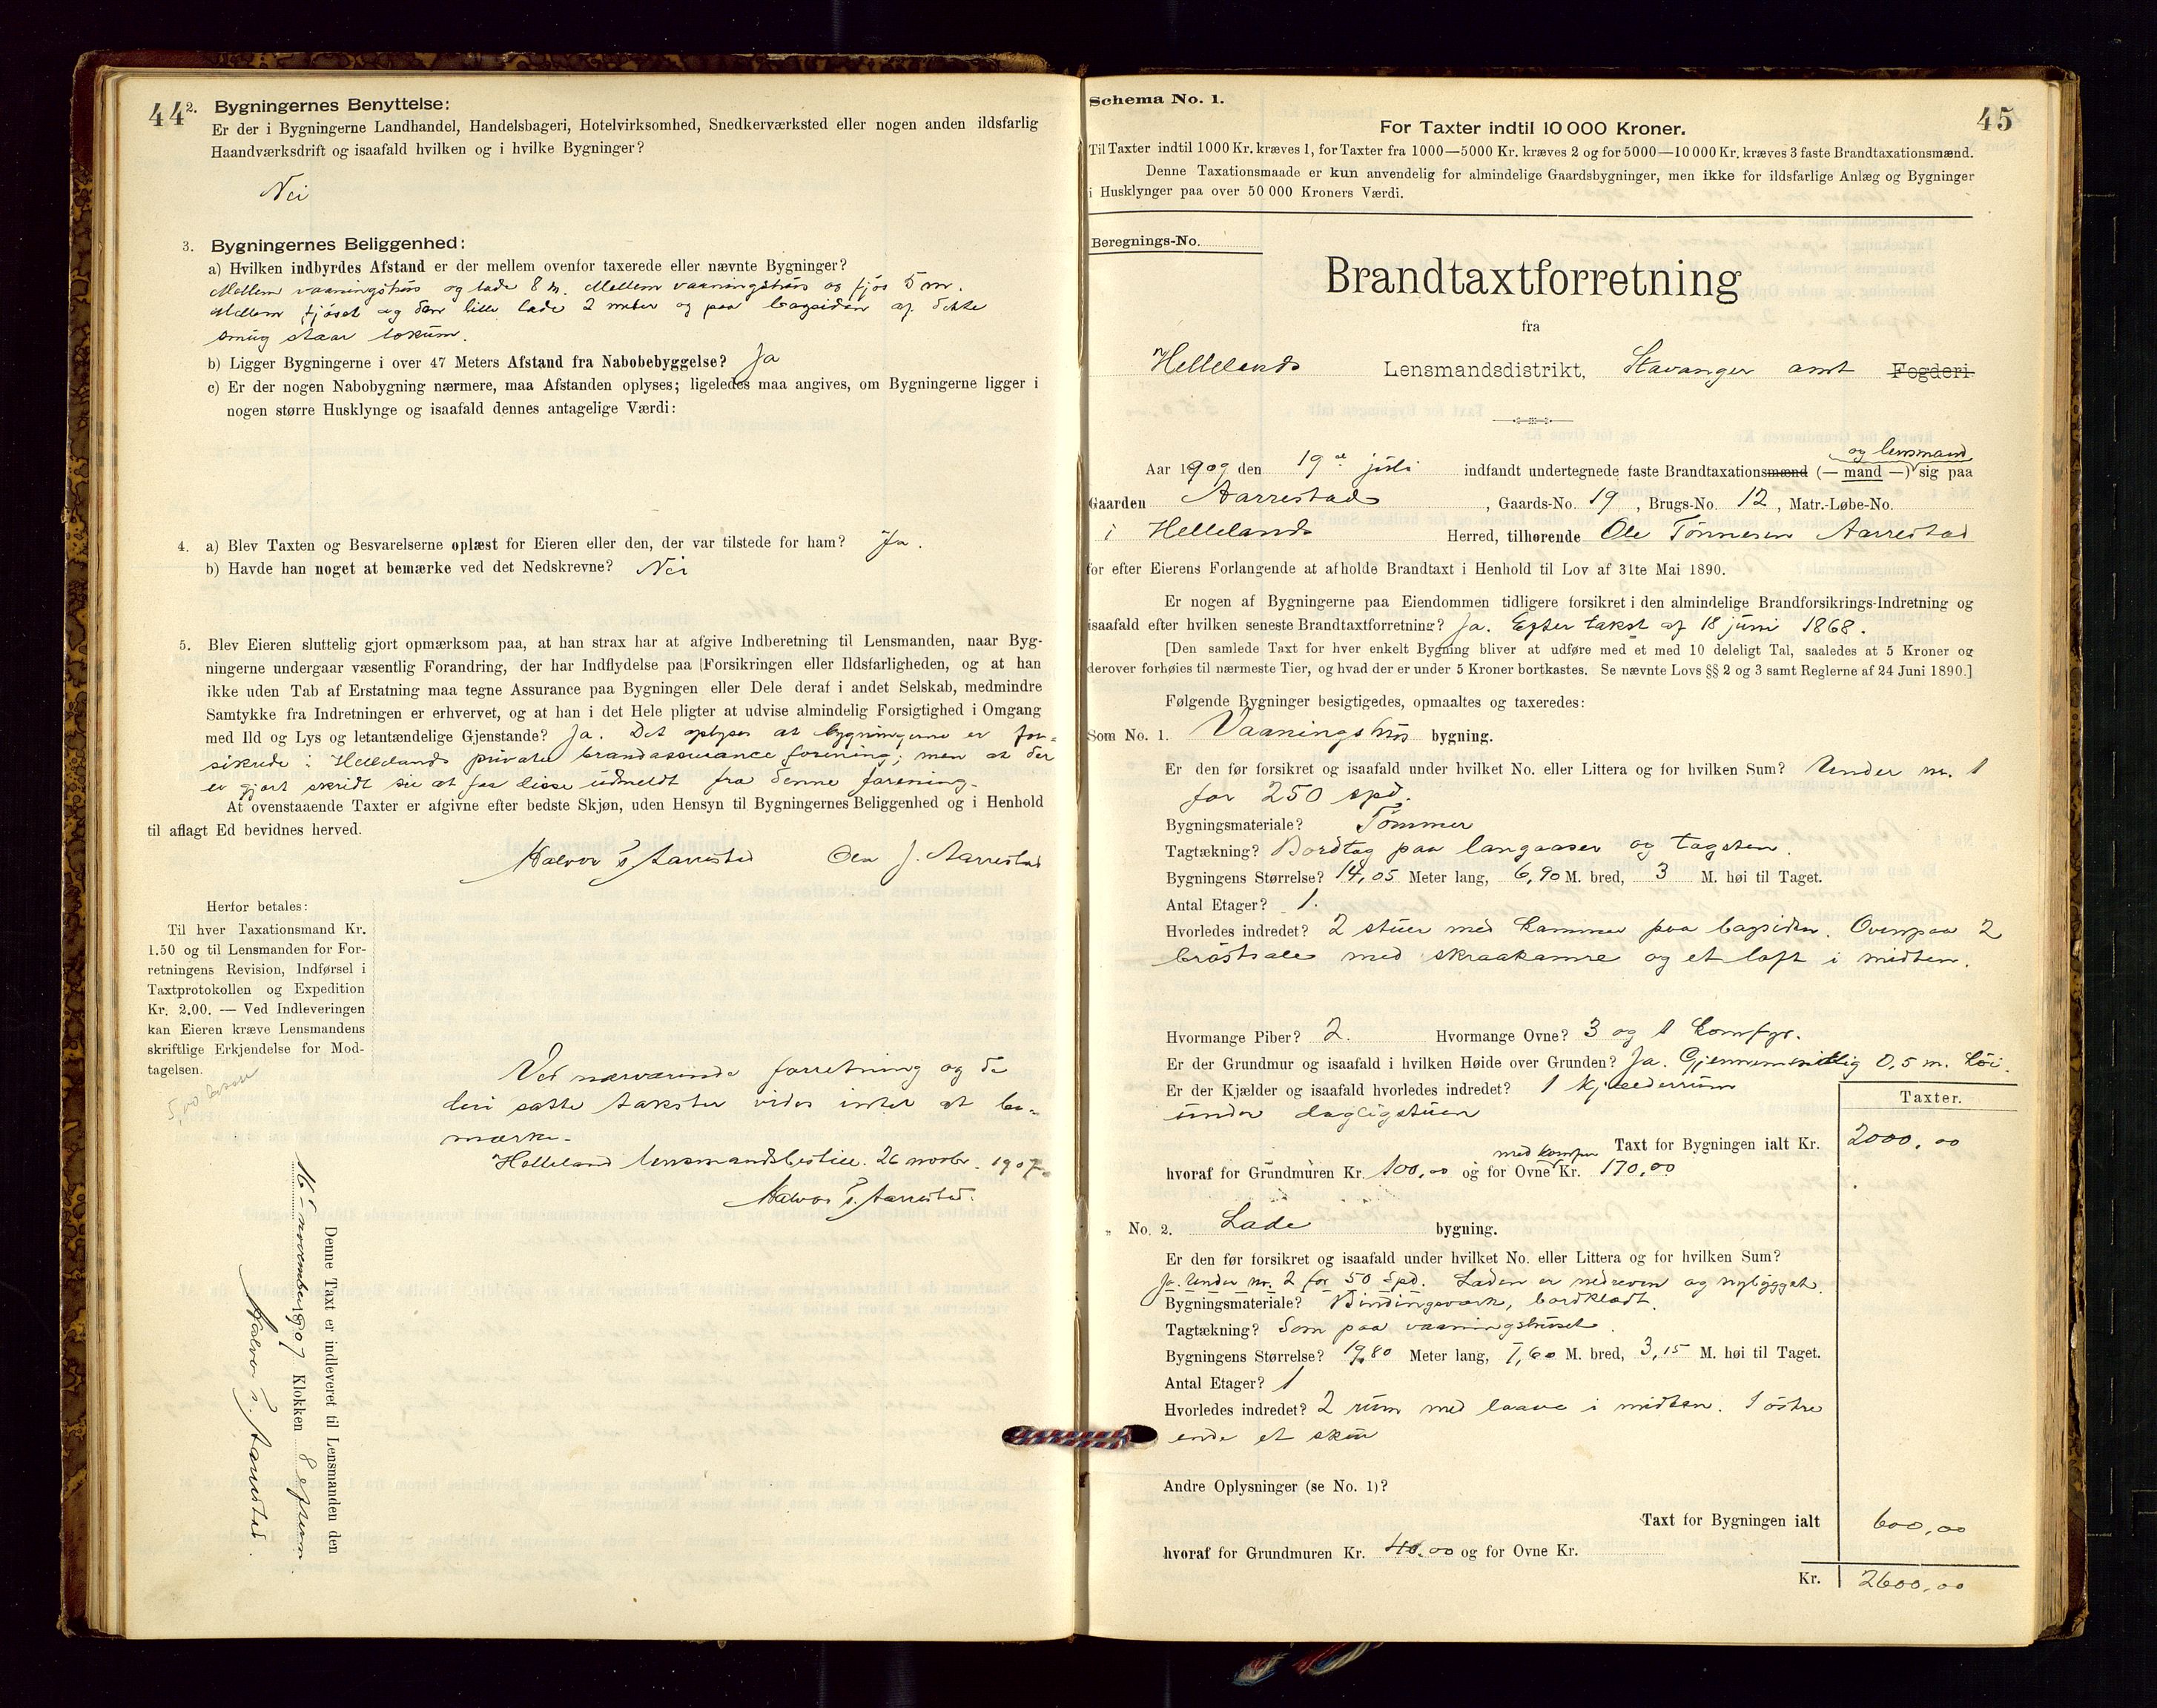 44
2. Bygningernes Benyttelse:
Er der i Bygningerne Landhandel, Handelsbageri, Hotelvirksomhed, Snedkerværksted eller nogen anden ildsfarlig
Haandværksdrift og isaafald hvilken og i hvilke Bygninger?
Nei
3. Bygningernes Beliggenhed:
a) Hvilken indbyrdes Afstand er der mellem ovenfor taxerede eller nævnte Bygninger?
Mellem vaaningshus og lade 8 m. Mellem vaaningshus og fjøs 5 m.
Mellem fjøset og den lille lade 2 meter og paa bagsiden af dette
smug staar lokum.
b) Ligger Bygningerne i over 47 Meters Afstand fra Nabobebyggelse? Ja
c) Er der nogen Nabobygning nærmere, maa Afstanden oplyses; ligeledes maa angives, om Bygningerne ligger i
nogen større Husklynge og isaafald dennes antagelige Værdi:
4. a) Blev Taxten og Besvarelserne oplæst for Eieren eller den, der var tilstede for ham? Ja.
b) Havde han noget at bemærke ved det Nedskrevne? Nei
5. Blev Eieren sluttelig gjort opmærksom paa, at han strax har at afgive Indberetning til Lensmanden, naar Byg-
ningerne undergaar væsentlig Forandring, der har Indflydelse paa Forsikringen eller Ildsfarligheden, og at han
ikke uden Tab af Erstatning maa tegne Assurance paa Bygningen eller Dele deraf i andet Selskab, medmindre
Samtykke fra Indretningen er erhvervet, og at han i det Hele pligter at udvise almindelig Forsigtighed i Omgang
med Ild og Lys og letantændelige Gjenstande? Ja. Det oplyses at bygningerne er for-
sikrede i Hellelands private brandassuranceforening; men at der
er gjort skridt til at faa disse udmeldt fra denne forening.
At ovenstaaende Taxter er afgivne efter bedste Skjøn, uden Hensyn til Bygningernes Beliggenhed og i Henhold
til aflagt Ed bevidnes herved.
Halvor T. Aarrestad Ola J. Aarrestad
Herfor betales:
Til hver Taxationsmand Kr.
1.50 og til Lensmanden for For-
retningens Revision, Indførsel i
Taxtprotokollen og Expedition
Kr. 2.00. — Ved Indleveringen
kan Eieren kræve Lensmandens
skriftlige Erkjendelse for Mod-
tagelsen.
5,00
Ved nærværende forretning og de
deri satte takster vides intet at be-
mærke.
Helleland lensmandsbestill. 26 novbr. 1907.
Halvor T. Aarrestad.
Denne Taxt er indleveret til Lensmanden den
16 november 1907 Klokken 8 efterm
Halvor T. Aarrestad.
Schema No. 1.
45
For Taxter indtil 10 000 Kroner.
Til Taxter indtil 1000 Kr. kræves 1, for Taxter fra 1000—5000 Kr. kræves 2 og for 5000—10 000 Kr. kræves 3 faste Brandtaxationsmænd.
Denne Taxationsmaade er kun anvendelig for almindelige Gaardsbygninger, men ikke for ildsfarlige Anlæg og Bygninger
i Husklynger paa over 50 000 Kroners Værdi.
Beregnings-No.
Brandtaxtforretning
fra
Hellelands Lensmandsdistrikt, Stavanger amt Fogderi
og lensmand
Aar 1909 den 19de juli indfandt undertegnede faste Brandtaxationsmænd (— mand —) sig paa
Gaarden Aarrestad, Gaards-No. 19, Brugs-No. 12, Matr.-Løbe-No.
i Hellelands Herred, tilhørende Ole Tønnesen Aarrestad
for efter Eierens Forlangende at afholde Brandtaxt i Henhold til Lov af 31te Mai 1890.
Er nogen af Bygningerne paa Eiendommen tidligere forsikret i den almindelige Brandforsikrings-Indretning og
isaafald efter hvilken seneste Brandtaxtforretning? Ja. Efter takst af 18 juni 1868.
[Den samlede Taxt for hver enkelt Bygning bliver at udføre med et med 10 deleligt Tal, saaledes at 5 Kroner og
derover forhøies til nærmeste Tier, og hvad der er under 5 Kroner bortkastes. Se nævnte Lovs §§ 2 og 3 samt Reglerne af 24 Juni 1890.]
Følgende Bygninger besigtigedes, opmaaltes og taxeredes:
Som No. 1. Vaaningshus bygning.
Er den før forsikret og isaafald under hvilket No. eller Littera og for hvilken Sum? Under nr. 1
for 250 spd.
Bygningsmateriale? Tømmer
Tagtækning? Bordtag paa langaaser og tagsten.
Bygningens Størrelse? 14,05 Meter lang, 6,90 M. bred, 3 M. høi til Taget.
Antal Etager? 1.
Hvorledes indredet? 2 stuer med kammer paa bagsiden. Ovenpaa 2
brøstsale med skraakamre og et loft i midten.
Hvormange Piber? 2. Hvormange Ovne? 3 og 1 komfyr.
Er der Grundmur og isaafald i hvilken Høide over Grunden? Ja. Gjennemsnitlig 0,5 m. høi.
Er der Kjælder og isaafald hvorledes indredet? 1 kjælderrum
under dagligstuen
Taxter.
Taxt for Bygningen ialt Kr. 2000,00
med komfyr
hvoraf for Grundmuren Kr. 100,00 og for Ovne Kr. 170,00
" No. 2. Lade bygning.
Er den før forsikret og isaafald under hvilket No. eller Littera og for hvilken Sum?
Ja. Under nr. 2 for 50 Spd. Laden er nedreven og nybygget.
Bygningsmateriale? Bindingsværk, bordklædt.
Tagtækning? Som paa vaaningshuset.
Bygningens Størrelse? 19,80 Meter lang, 7,60 M. bred, 3,15 M. høi til Taget.
Antal Etager? 1
Hvorledes indredet? 2 rum med laave i midten. I østre
ende et skur
Andre Oplysninger (se No. 1)?
Taxt for Bygningen ialt 600,00
hvoraf for Grundmuren Kr. 40.00 og for Ovne Kr.
Kr. 2600,00